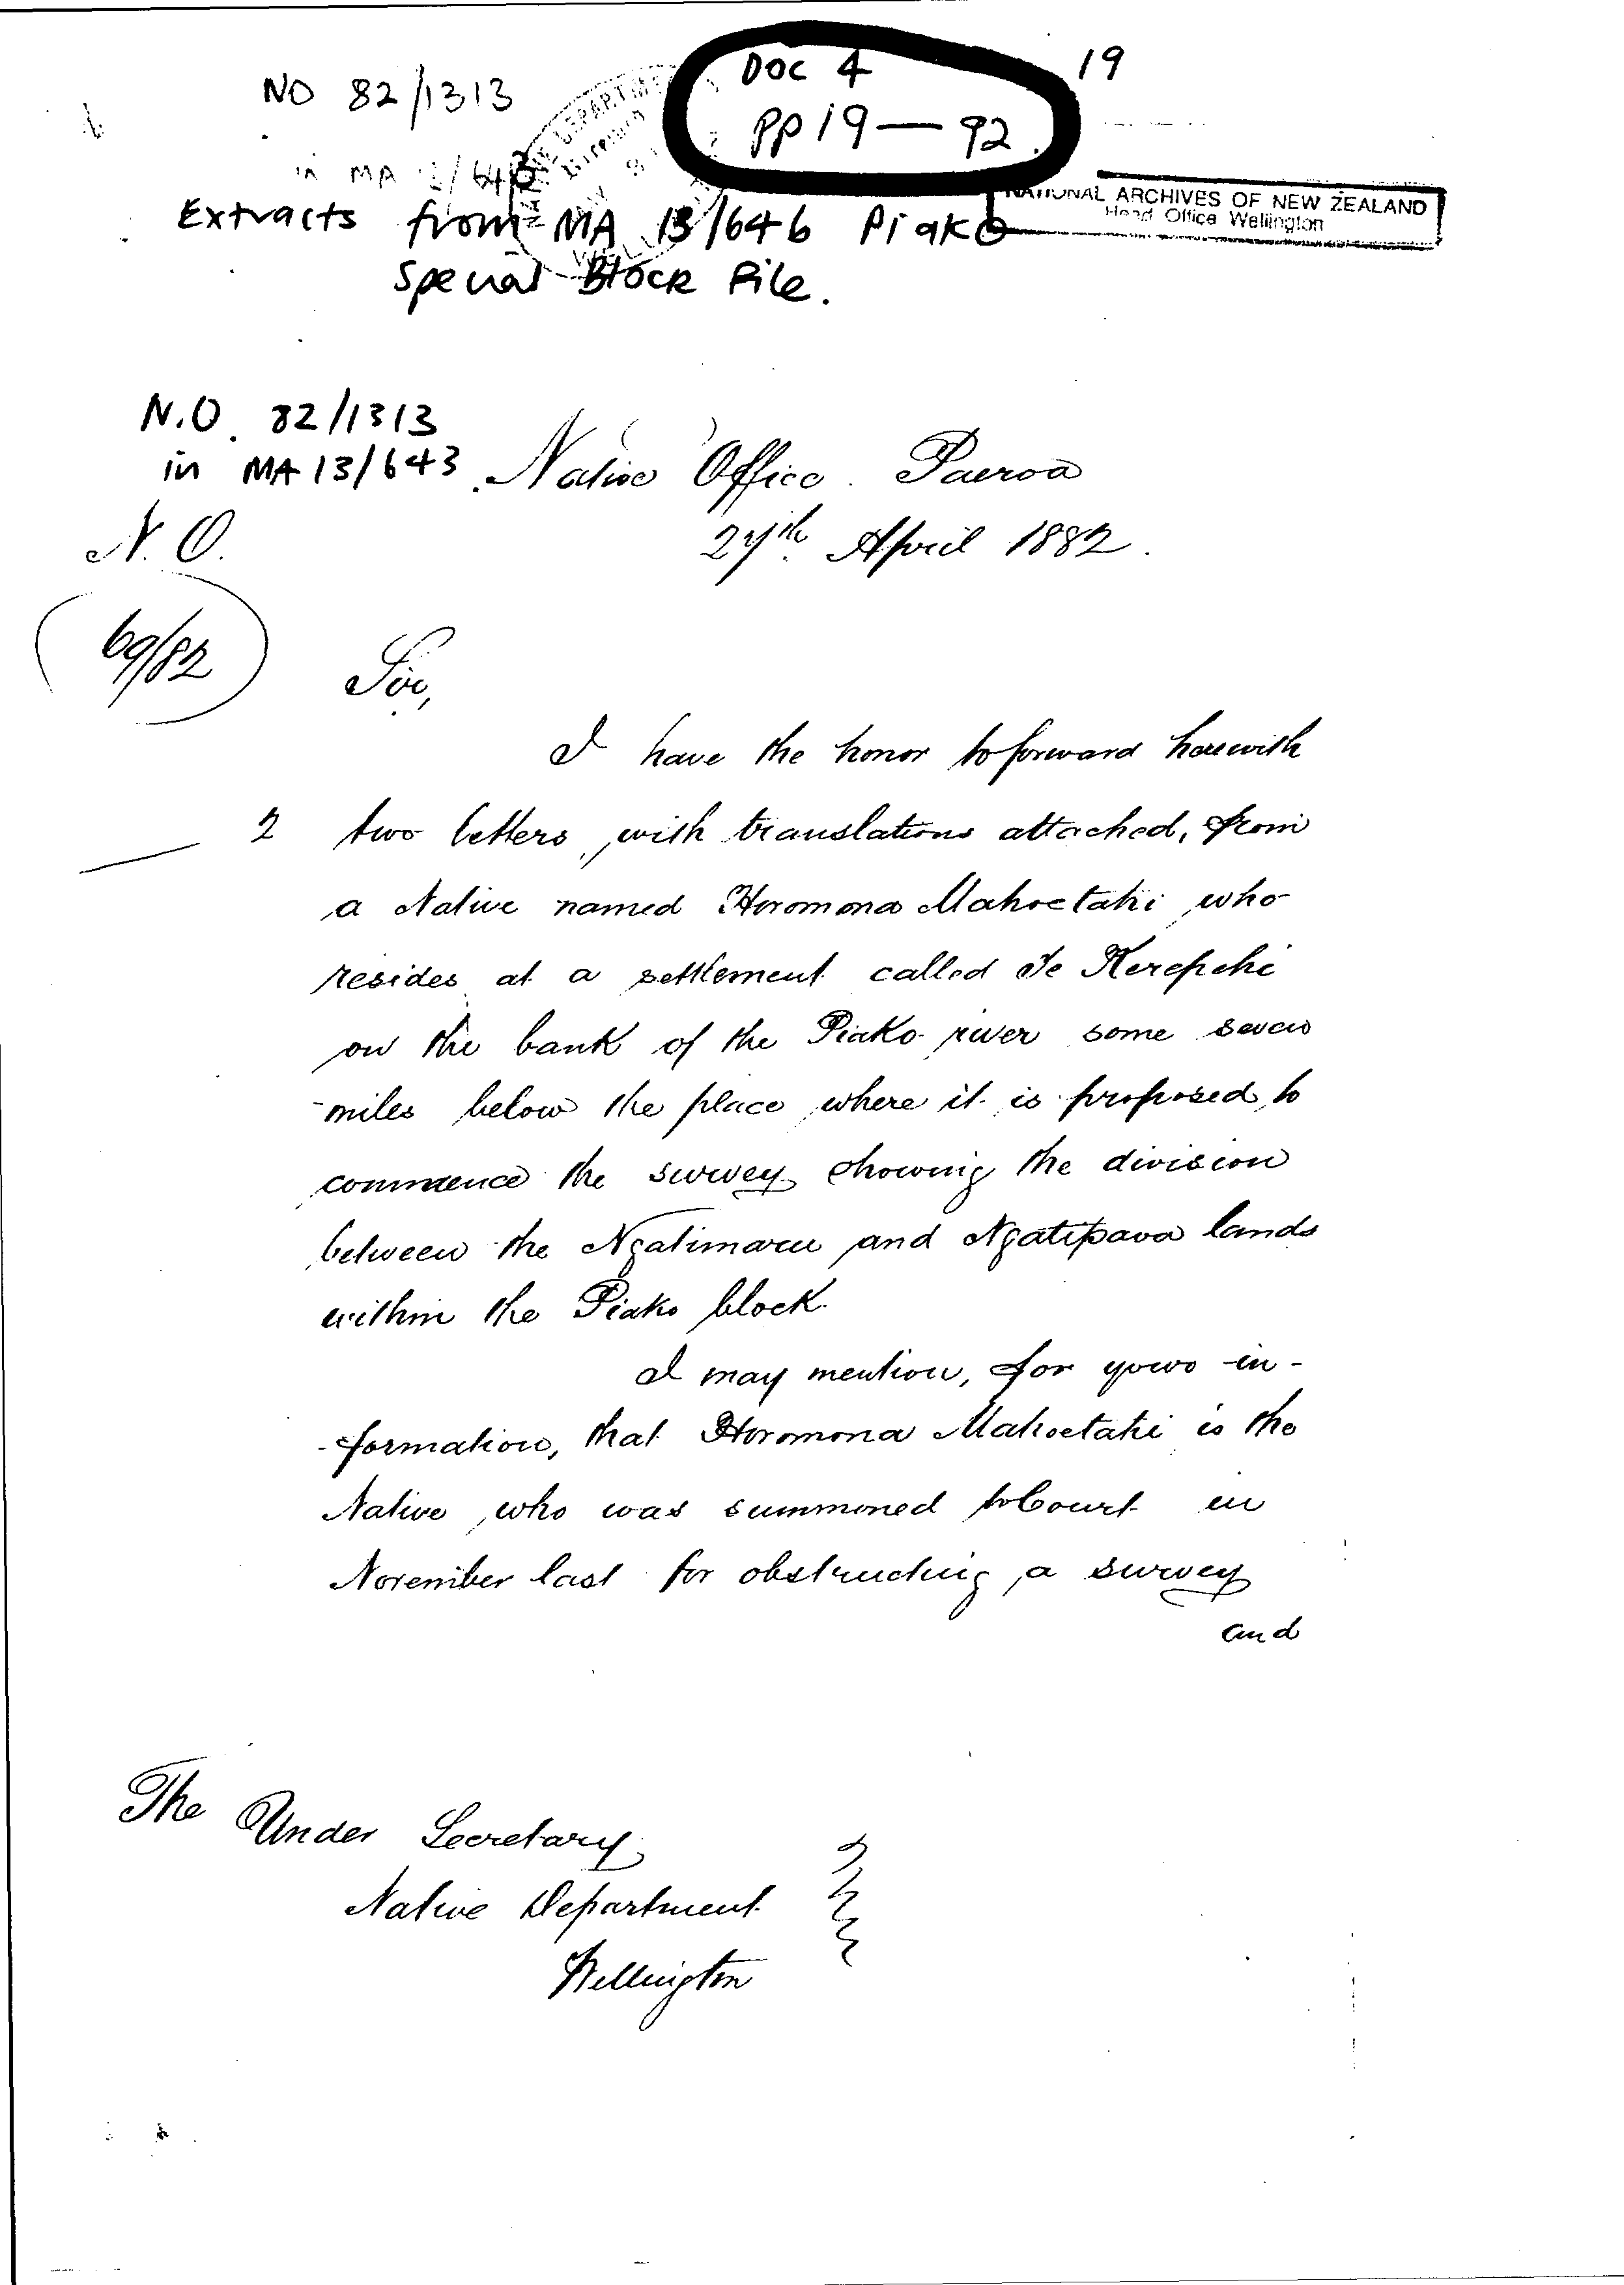 19
DOC 4
PP 19 — 92
NO 82/1313
in MA
NATIONAL ARCHIVES OF NEW ZEALAND
Head Office Wellington
Extracts from MA 13/646 Piako
Special Block File.
N.O. 82/1313
in MA 13/643
Native Office. Paeroa
27th April 1882.
N. O.
69/82
Sir,
I have the honor to forward herewith
2 two letters, with translations attached, from
a Native named Horomona Mahoetahi who
resides at a settlement called Te Kerepehi
on the bank of the Piako river some seven
miles below the place where it is proposed to
commence the survey showing the division
between the Ngatimaru and Ngatipaoa lands
within the Piako block.
I may mention, for your in-
-formation, that Horomona Mahoetahi is the
Native who was summoned to Court in
November last for obstructing a survey
and
The Under Secretary
Native Department
Wellington